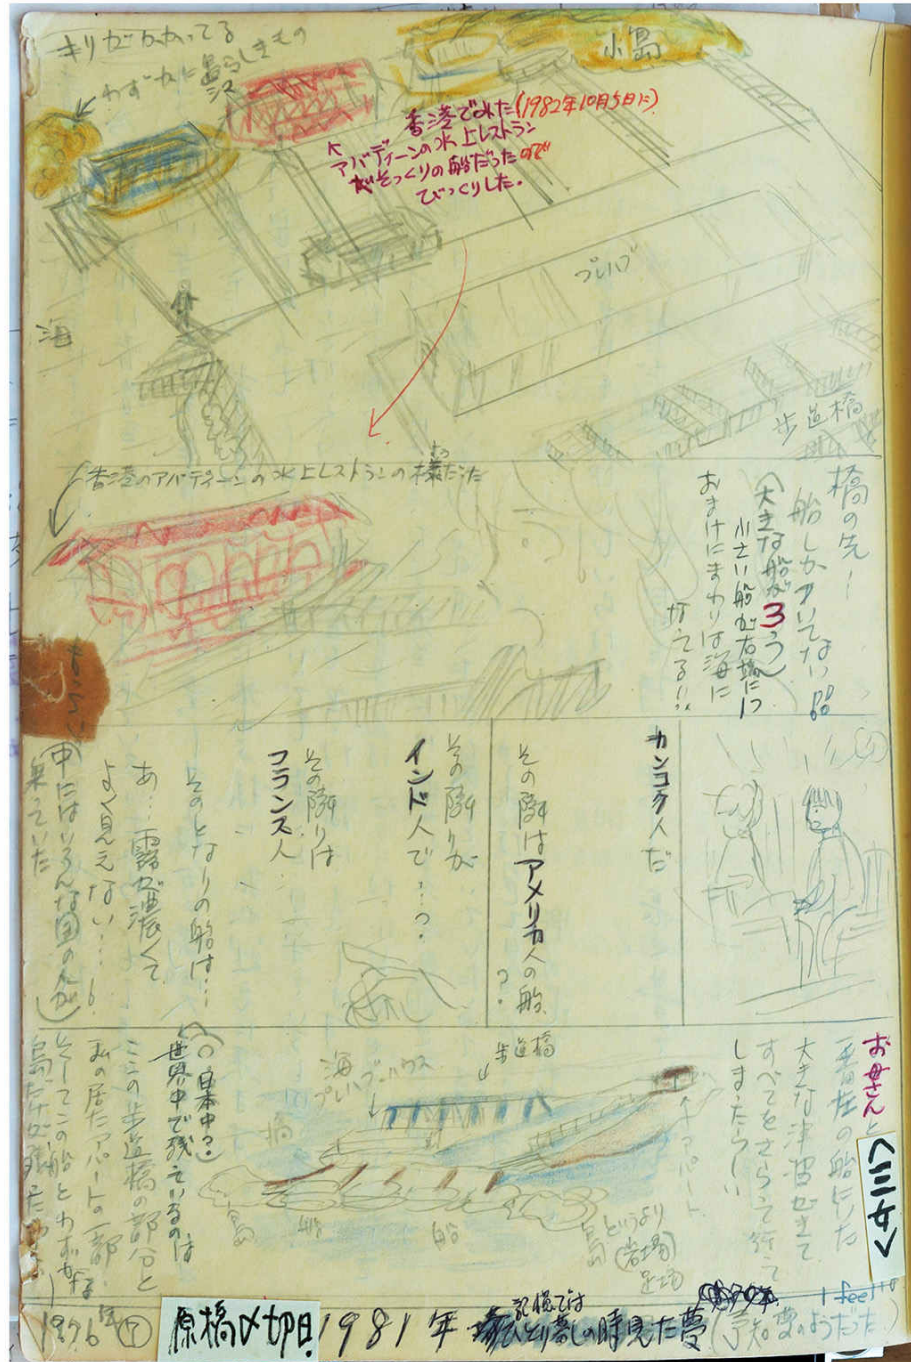 キリがかかってる
わずかに島らしきもの
小島
香港でみた(1982年10月5日に)
アバディーンの水上レストラン
がそっくりの船だったので
びっくりした。
海
プレハブ
歩道橋
香港のアバディーンの水上レストランの様だった
橋の先—
船しかついてない
(大きな船が3つ)
小さい船が右端に1つ
おまけにまわりは海に
なってる!!
カンコク人だ
その隣はアメリカ人の船
?・
その隣りが
インド人で…?・
その隣りは
フランス人
そのとなりの船は…
あ…霧が濃くて
よく見えない…
(中にはいろんな国の人が
乗っていた)
お母さんと
一番左の船にいた
大きな津波がきて
すべてをさらって行って
しまったらしい
<三女>
歩道橋
海
プレハブハウス
アパート
橋
島
船
船
島というより
(岩場)
足場
(○日本中?)
世界中で残っているのは
ここの歩道橋の部分と
私の居たアパートの一部
そしてこの船とわずかな
島だけが残った
1976年
⑦
原稿〆切日
1981年
記憶では
ひとり暮しの時見た夢
(予知夢のようだった)
I feel